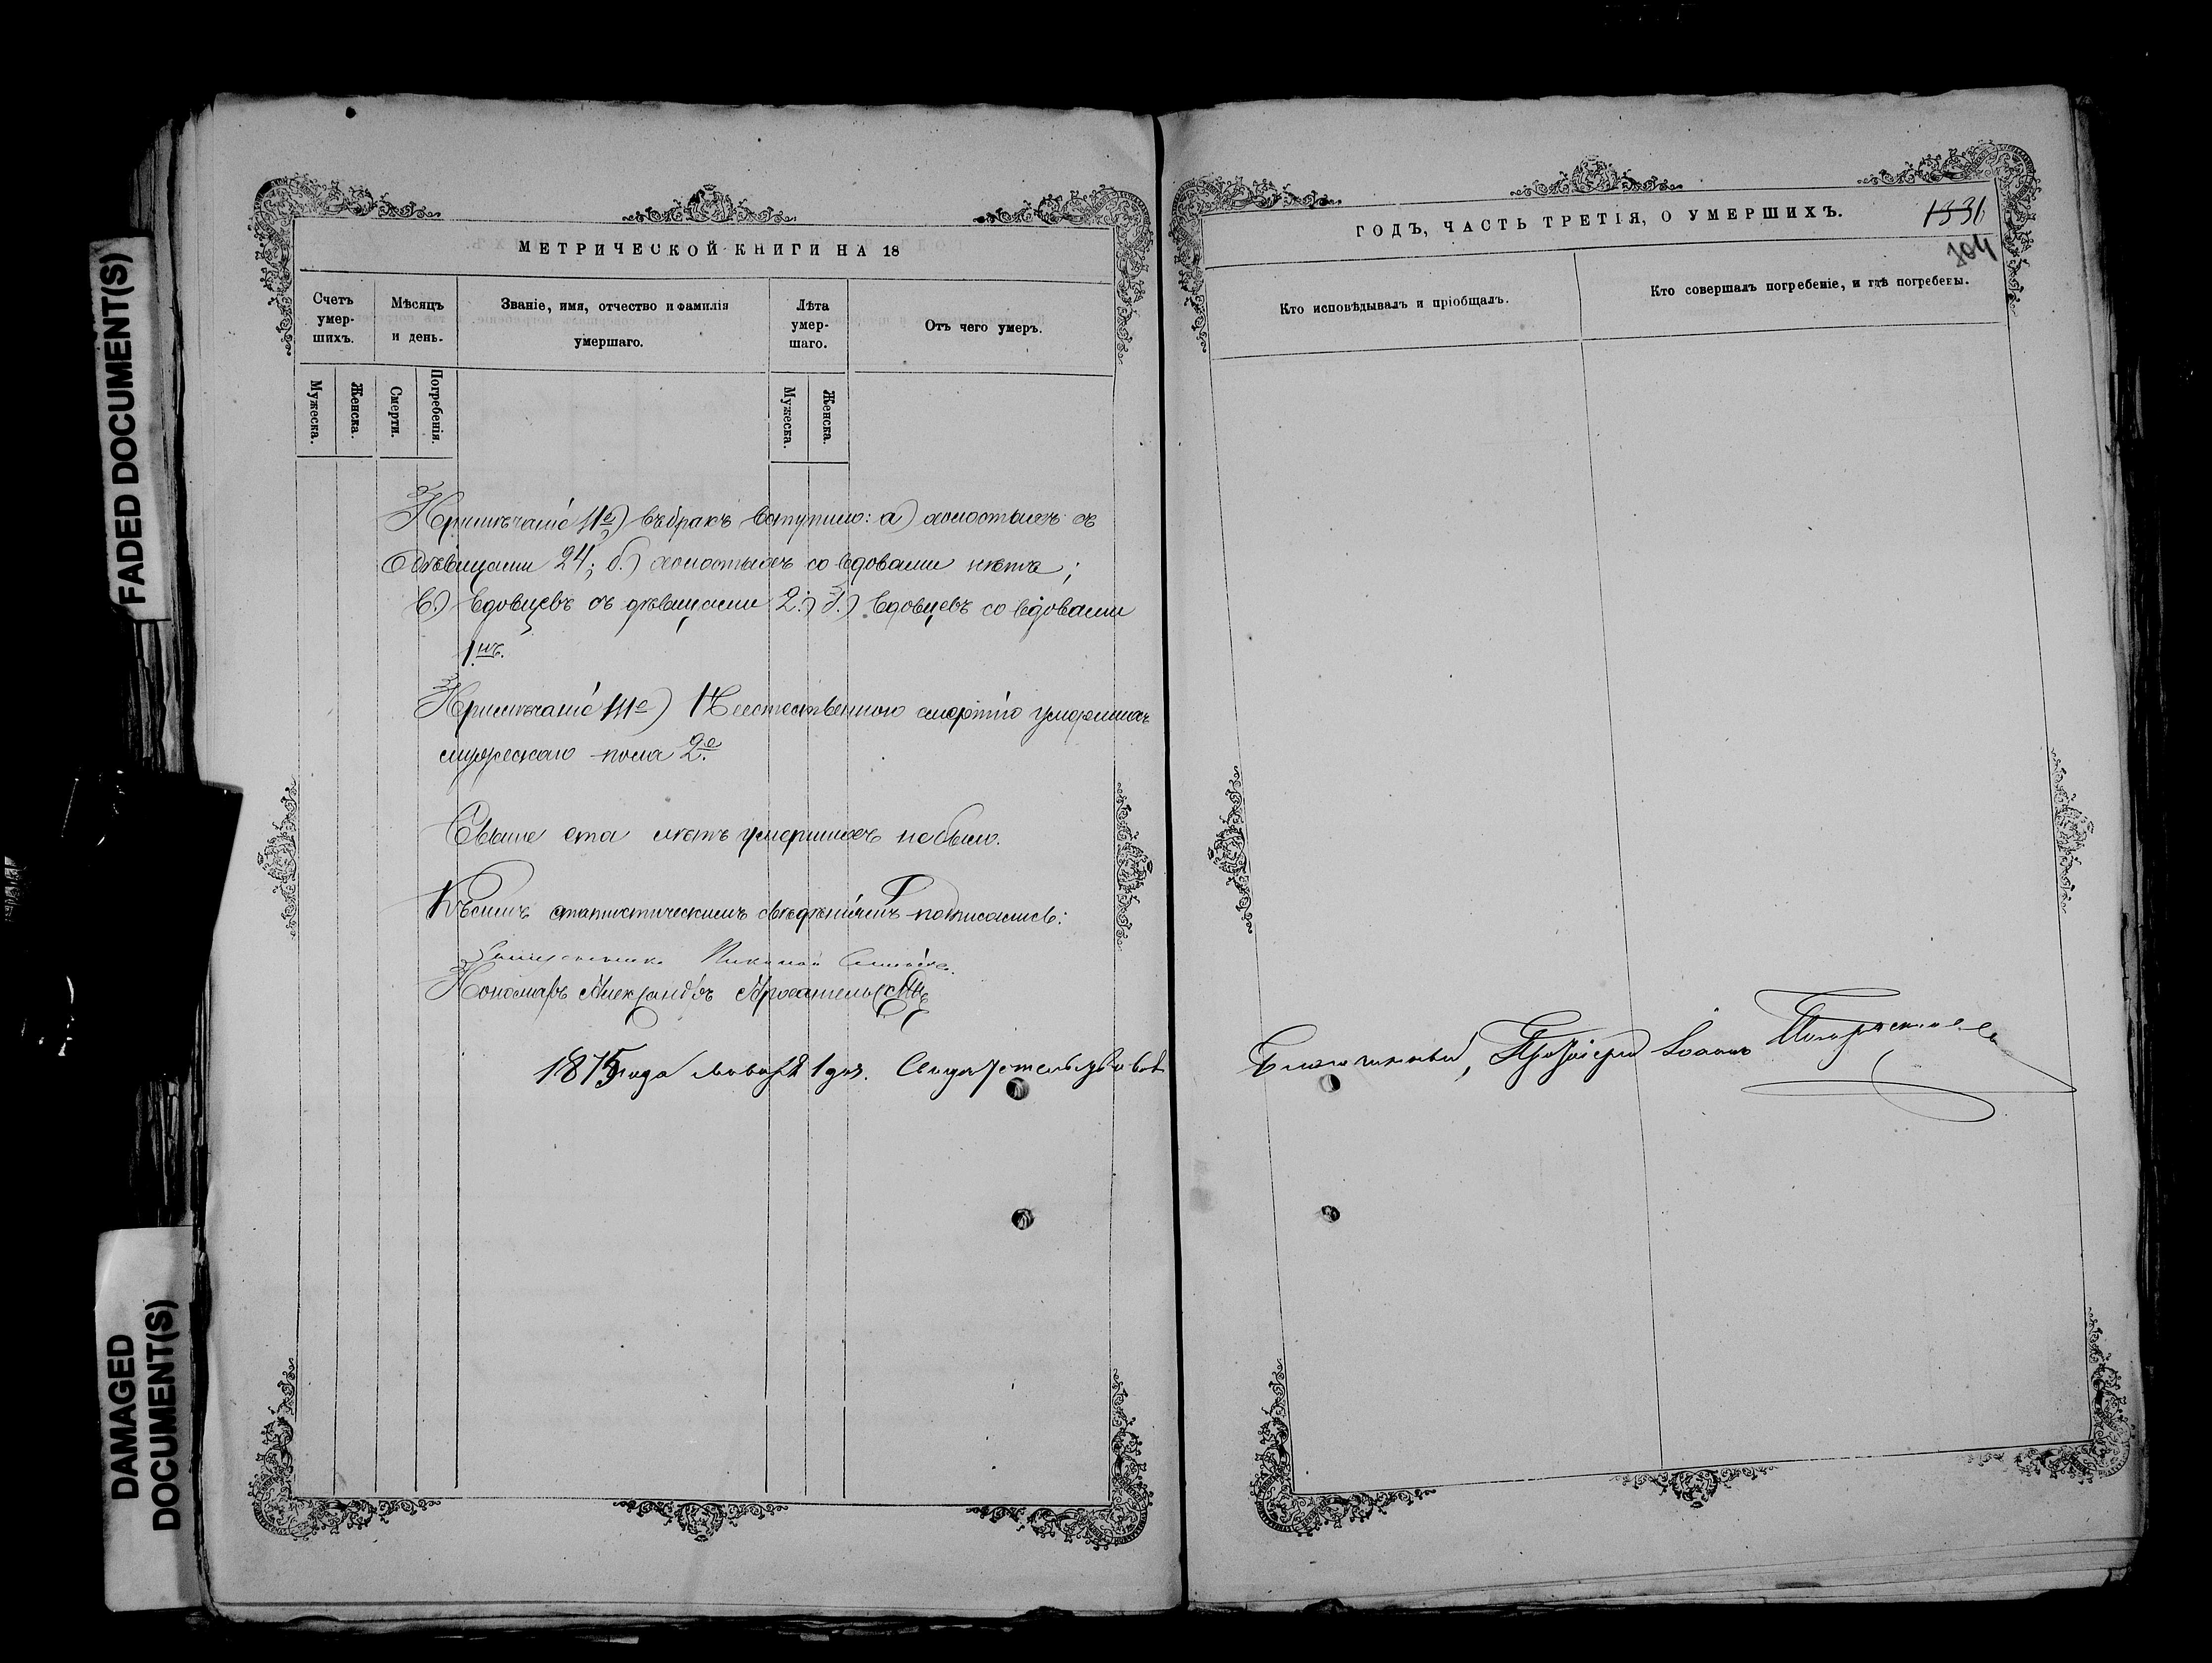 FADED DOCUMENT(S)
DAMAGED
DOCUMENT(S)
МЕТРИЧЕСКОЙ КНИГИ НА 18
Счетъ
умер-
шихъ.
Мѣсяцъ
и день.
Званіе, имя, отчество и фамилія
умершаго.
Лѣта
умер-
шаго.
Отъ чего умеръ.
Мужеска.
Женска.
Смерти.
Погребенія.
Мужеска.
Женска.
Примѣчаніе IIе) въ бракъ вступило: а) холостыхъ съ
дѣвицами 24; б.) холостыхъ со вдовами нѣтъ;
в.) вдовцевъ съ дѣвицами 2.; г.) вдовцевъ со вдовами
1.нъ.
Примѣчаніе IIIе) Неестественною смертію умершихъ
мужескаго пола 2.е
Свыше ста лѣтъ умершихъ не было.
Къ симъ статистическимъ свѣдѣніямъ подписались:
Николай
Пономарь Александръ Архангельскій
1875 года Января 1 дня. Свидѣтельствовалъ
ГОДЪ, ЧАСТЬ ТРЕТІЯ, О УМЕРШИХЪ.
1331
704
Кто исповѣдывалъ и пріобщалъ.
Кто совершалъ погребеніе, и гдѣ погребены.
Благочинный, Протоіерей Іоаннъ